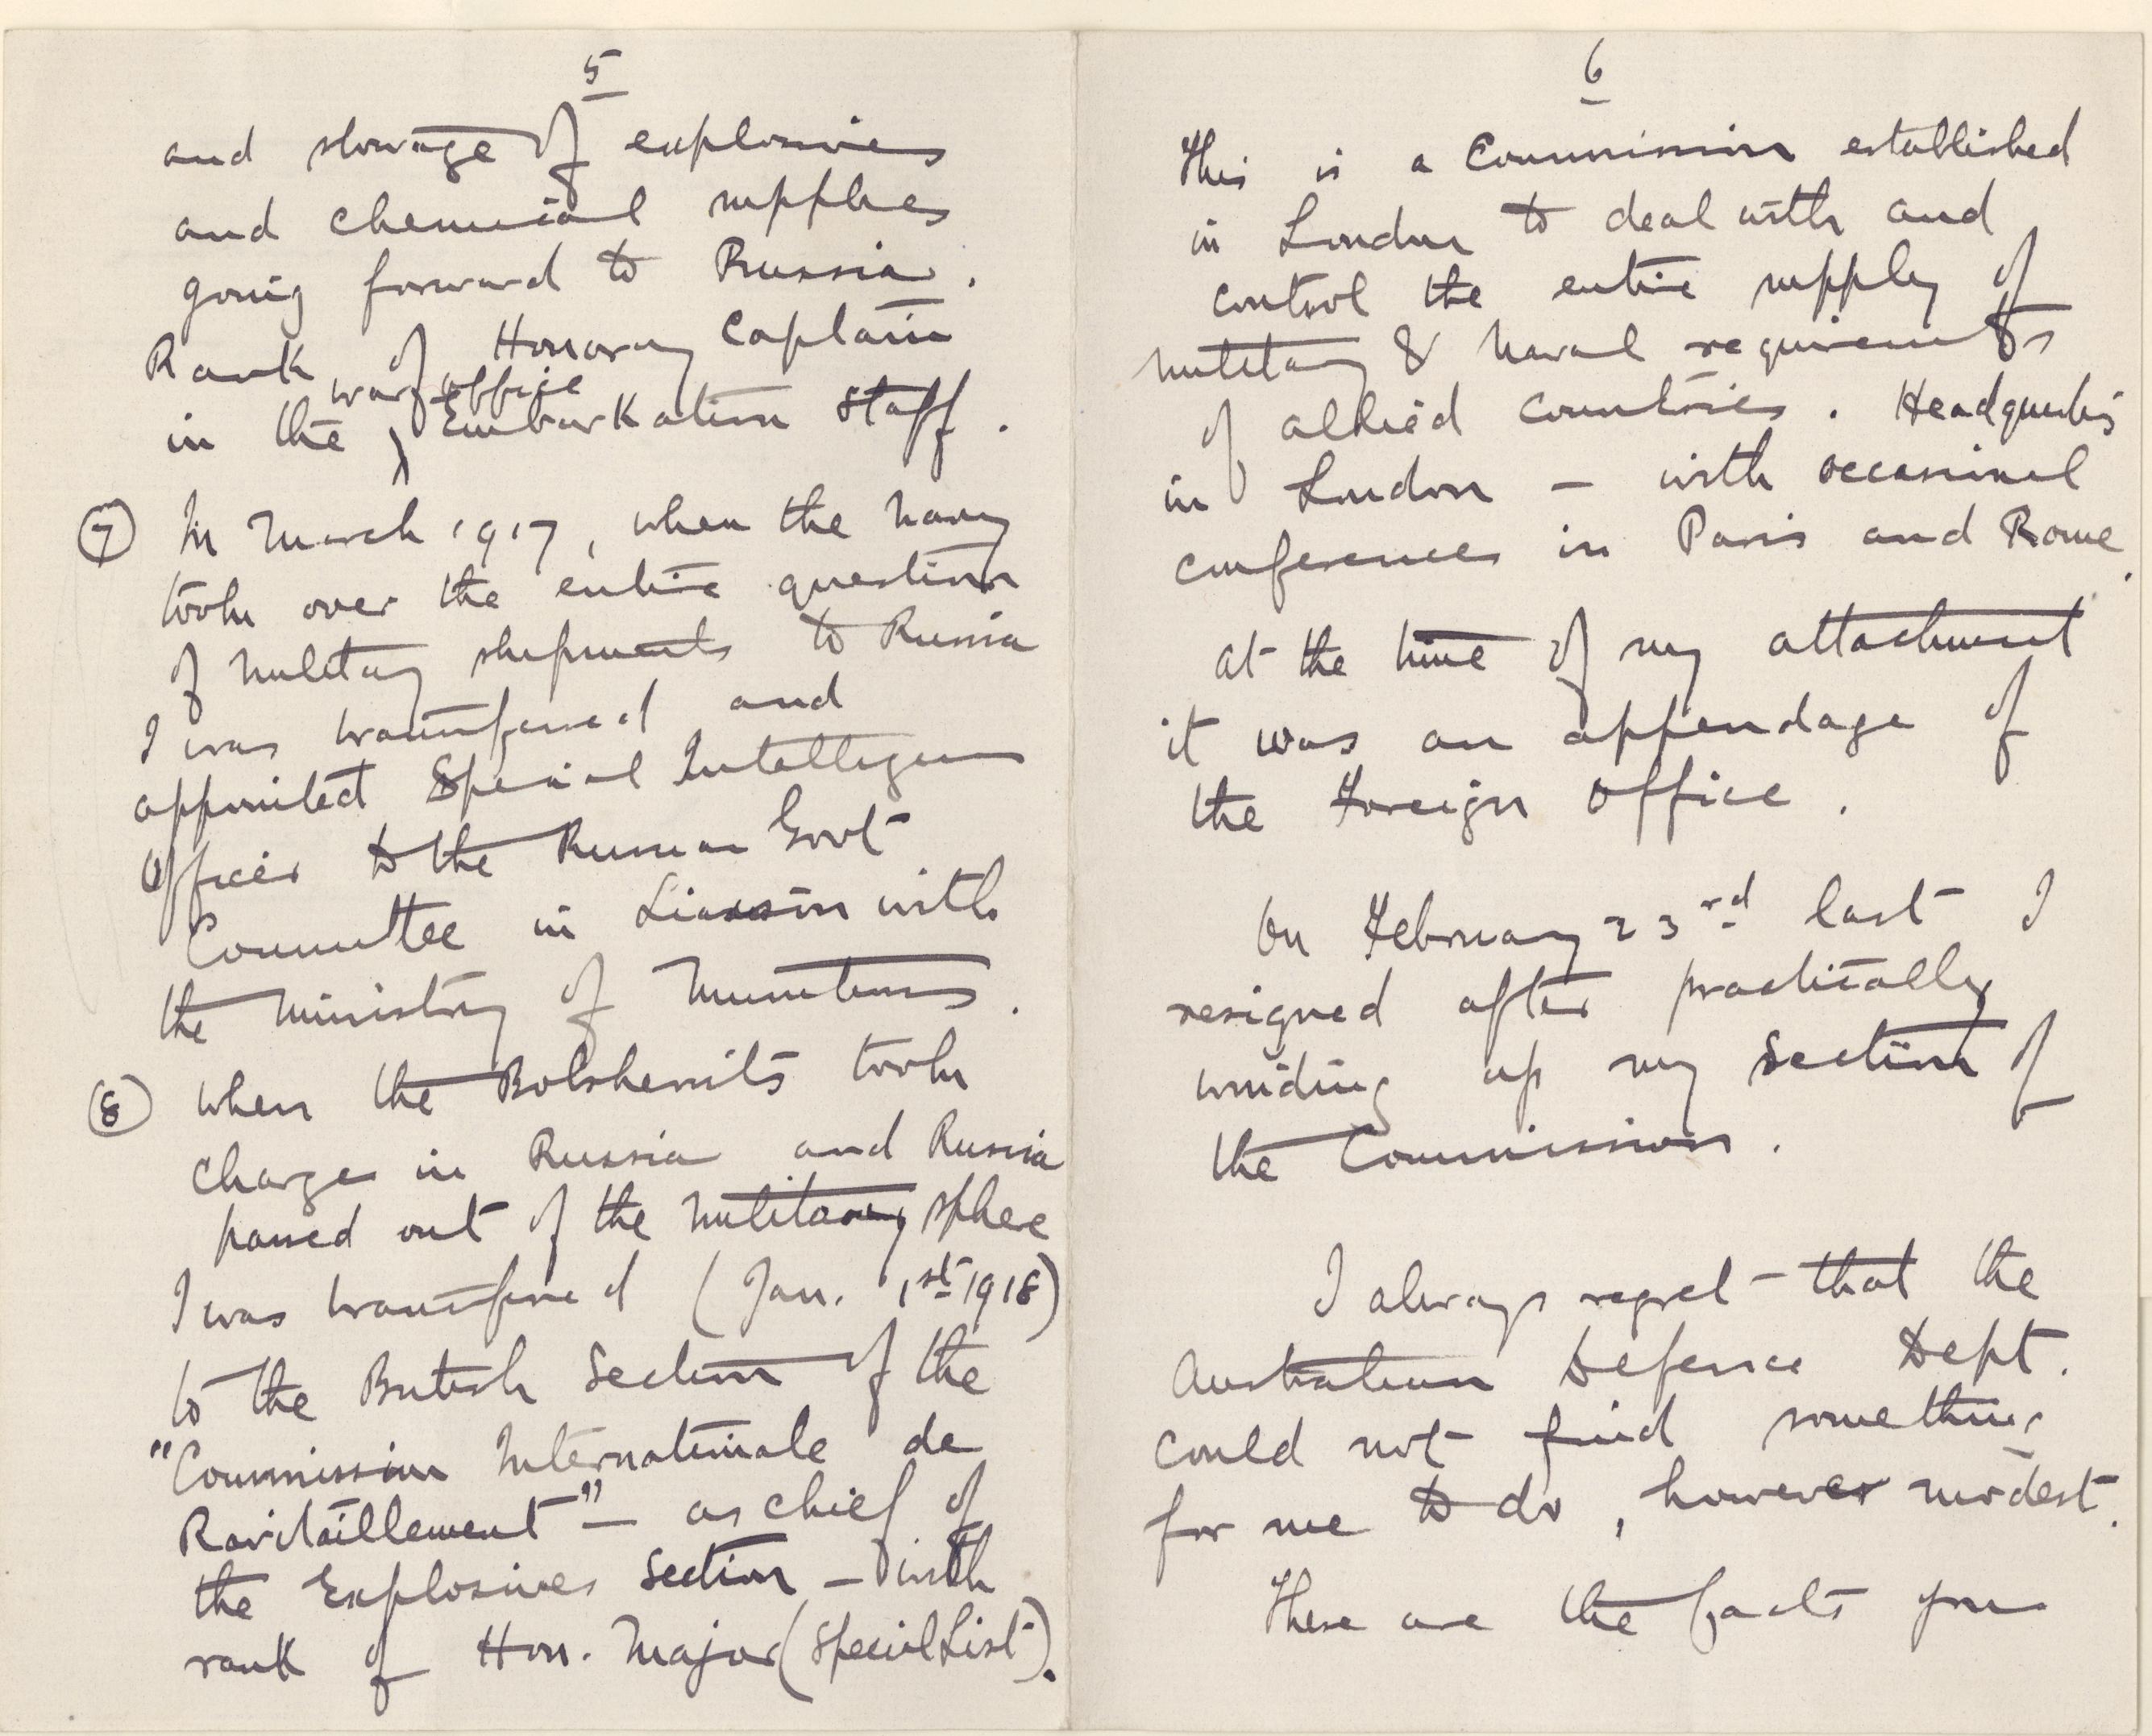 5
and stowage of explosives
and chemical supplies
going forward to Russia.
Rank of Honorary Captain
war office
in the Embarkation Staff.
(7) In March 1917, when the navy
took over the entire question
of military shipments to Russia
I was transferred and
appointed Special Intelligence
Officer to the Russian Govt
Committee in Liaison with
the Ministry of Munitions.
(8) When the Bolsheviks took
charge in Russia and Russia
passed out of the military sphere
I was transferred (Jan. 1st 1918)
to the British Section of the
"Commission Internationale de
Ravitaillement" - as chief of
the Explosives Section - with
rank of Hon. Major (Special List).
6
This is a Commission established
in London to deal with and
control the entire supply of
military & naval requirements
of allied countries. Headquarters
in London - with occasional
conferences in Paris and Rome.
at the time of my attachment
it was an appendage of
the Foreign Office.
On February 23rd last I
resigned after practically
winding up my section of
the Commission.
I always regret - that the
Australian Defence Dept.
could not find something
for me to do, however modest.
These are the facts you